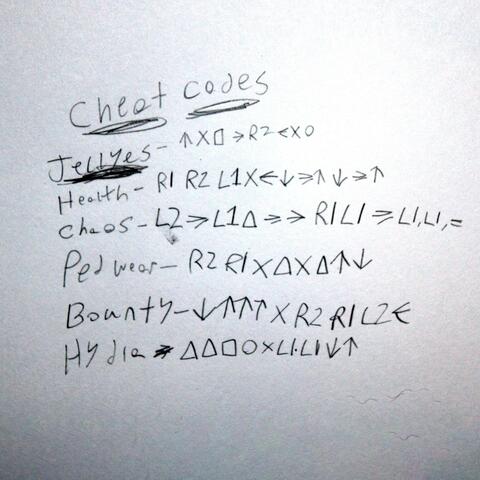 Cheat codes
Jellyes- ↑X□→R2←XO
Health- R1 R2 L1X←↓→↑↓→↑
Chaos- L2→L1△→→R1L1→L1,L1,=
Ped wear- R2R1X△X△↑↓
Bounty-↓↑↑↑XR2R1L2←
△△□OXL1.L1↓↑